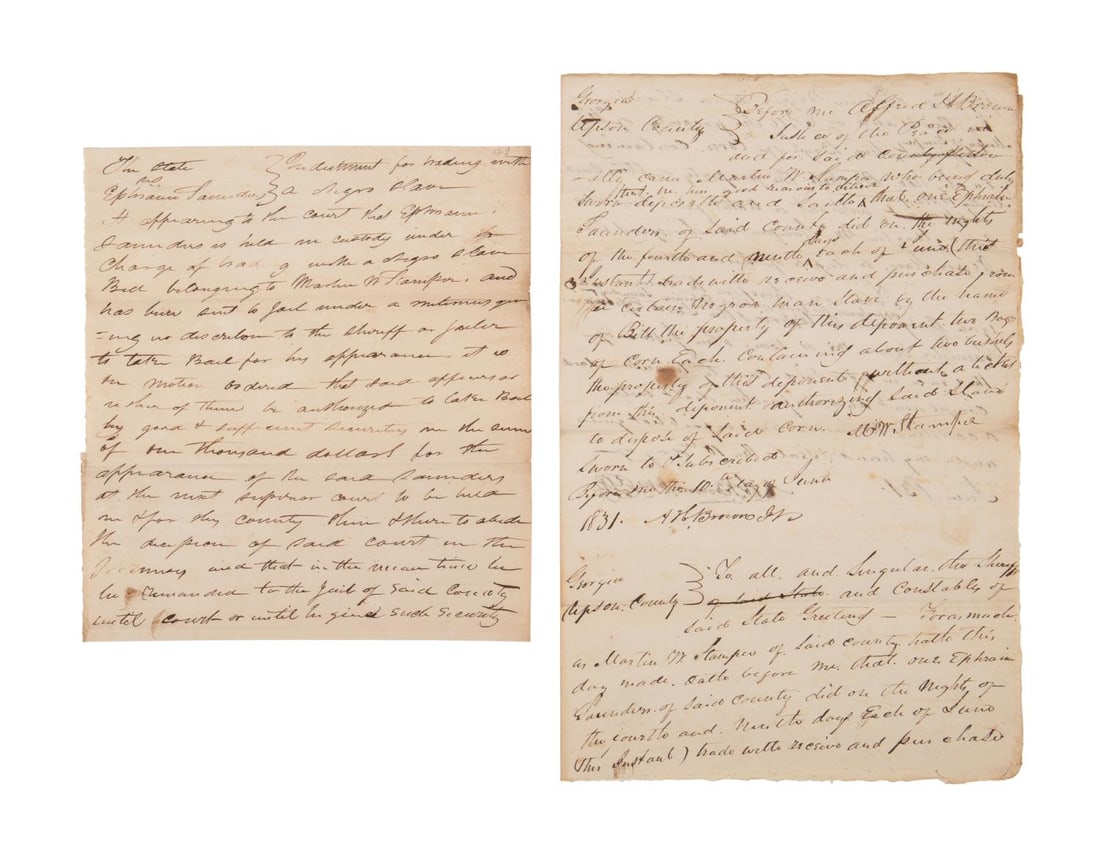 The State
vs
Ephraim Saunders
Indictment for trading with
a Negro Slave
It appearing to the court that Ephraim
Saunders is held in custody under the
Charge of trading with a Negro Slave
Bill belonging to Martin W Stamper, and
has been sent to Jail under a mittimus giv
-ing no discretion to the sheriff or Jailer
to take Bail for his appearance it is
on motion ordered that said officers or
either of them be authorized to take Bail
by good & sufficient securities in the sum
of one thousand dollars for the
appearance of the said Saunders
at the next superior court to be held
in & for this county then & there to abide
the decision of said court in the
and that in the mean time he
be remanded to the Jail of said County
until court or until he gives such security
Georgia
Upson County
Before me Alfred H Brown
a Justice of the Peace in
and for said County
came Martin W. Stamper who being duly
that he has good reasons to believe
sworn deposeth and saith that one Ephraim
Saunders of said County did on the nights
of the fourth and ninth days Each of June (this
Instant) trade with receive and purchase from
a certain Negro man Slave by the name
of Bill the property of this deponent two Bags
of corn Each Containing about two bushels
the property of this deponent without a ticket
from this deponent authorizing said Slave
to dispose of said Corn. M W Stamper
Sworn to & Subscribed
Before me this 10th day of June
1831. A H Brown J P
Georgia
Upson County
To all and Singular the Sheriffs
of said State and Constables of
said State Greeting — Forasmuch
as Martin W. Stamper of said county hath this
day made oath before me that one Ephraim
Saunders of said County did on the Nights of
the fourth and Ninth days Each of June
this Instant) trade with receive and purchase